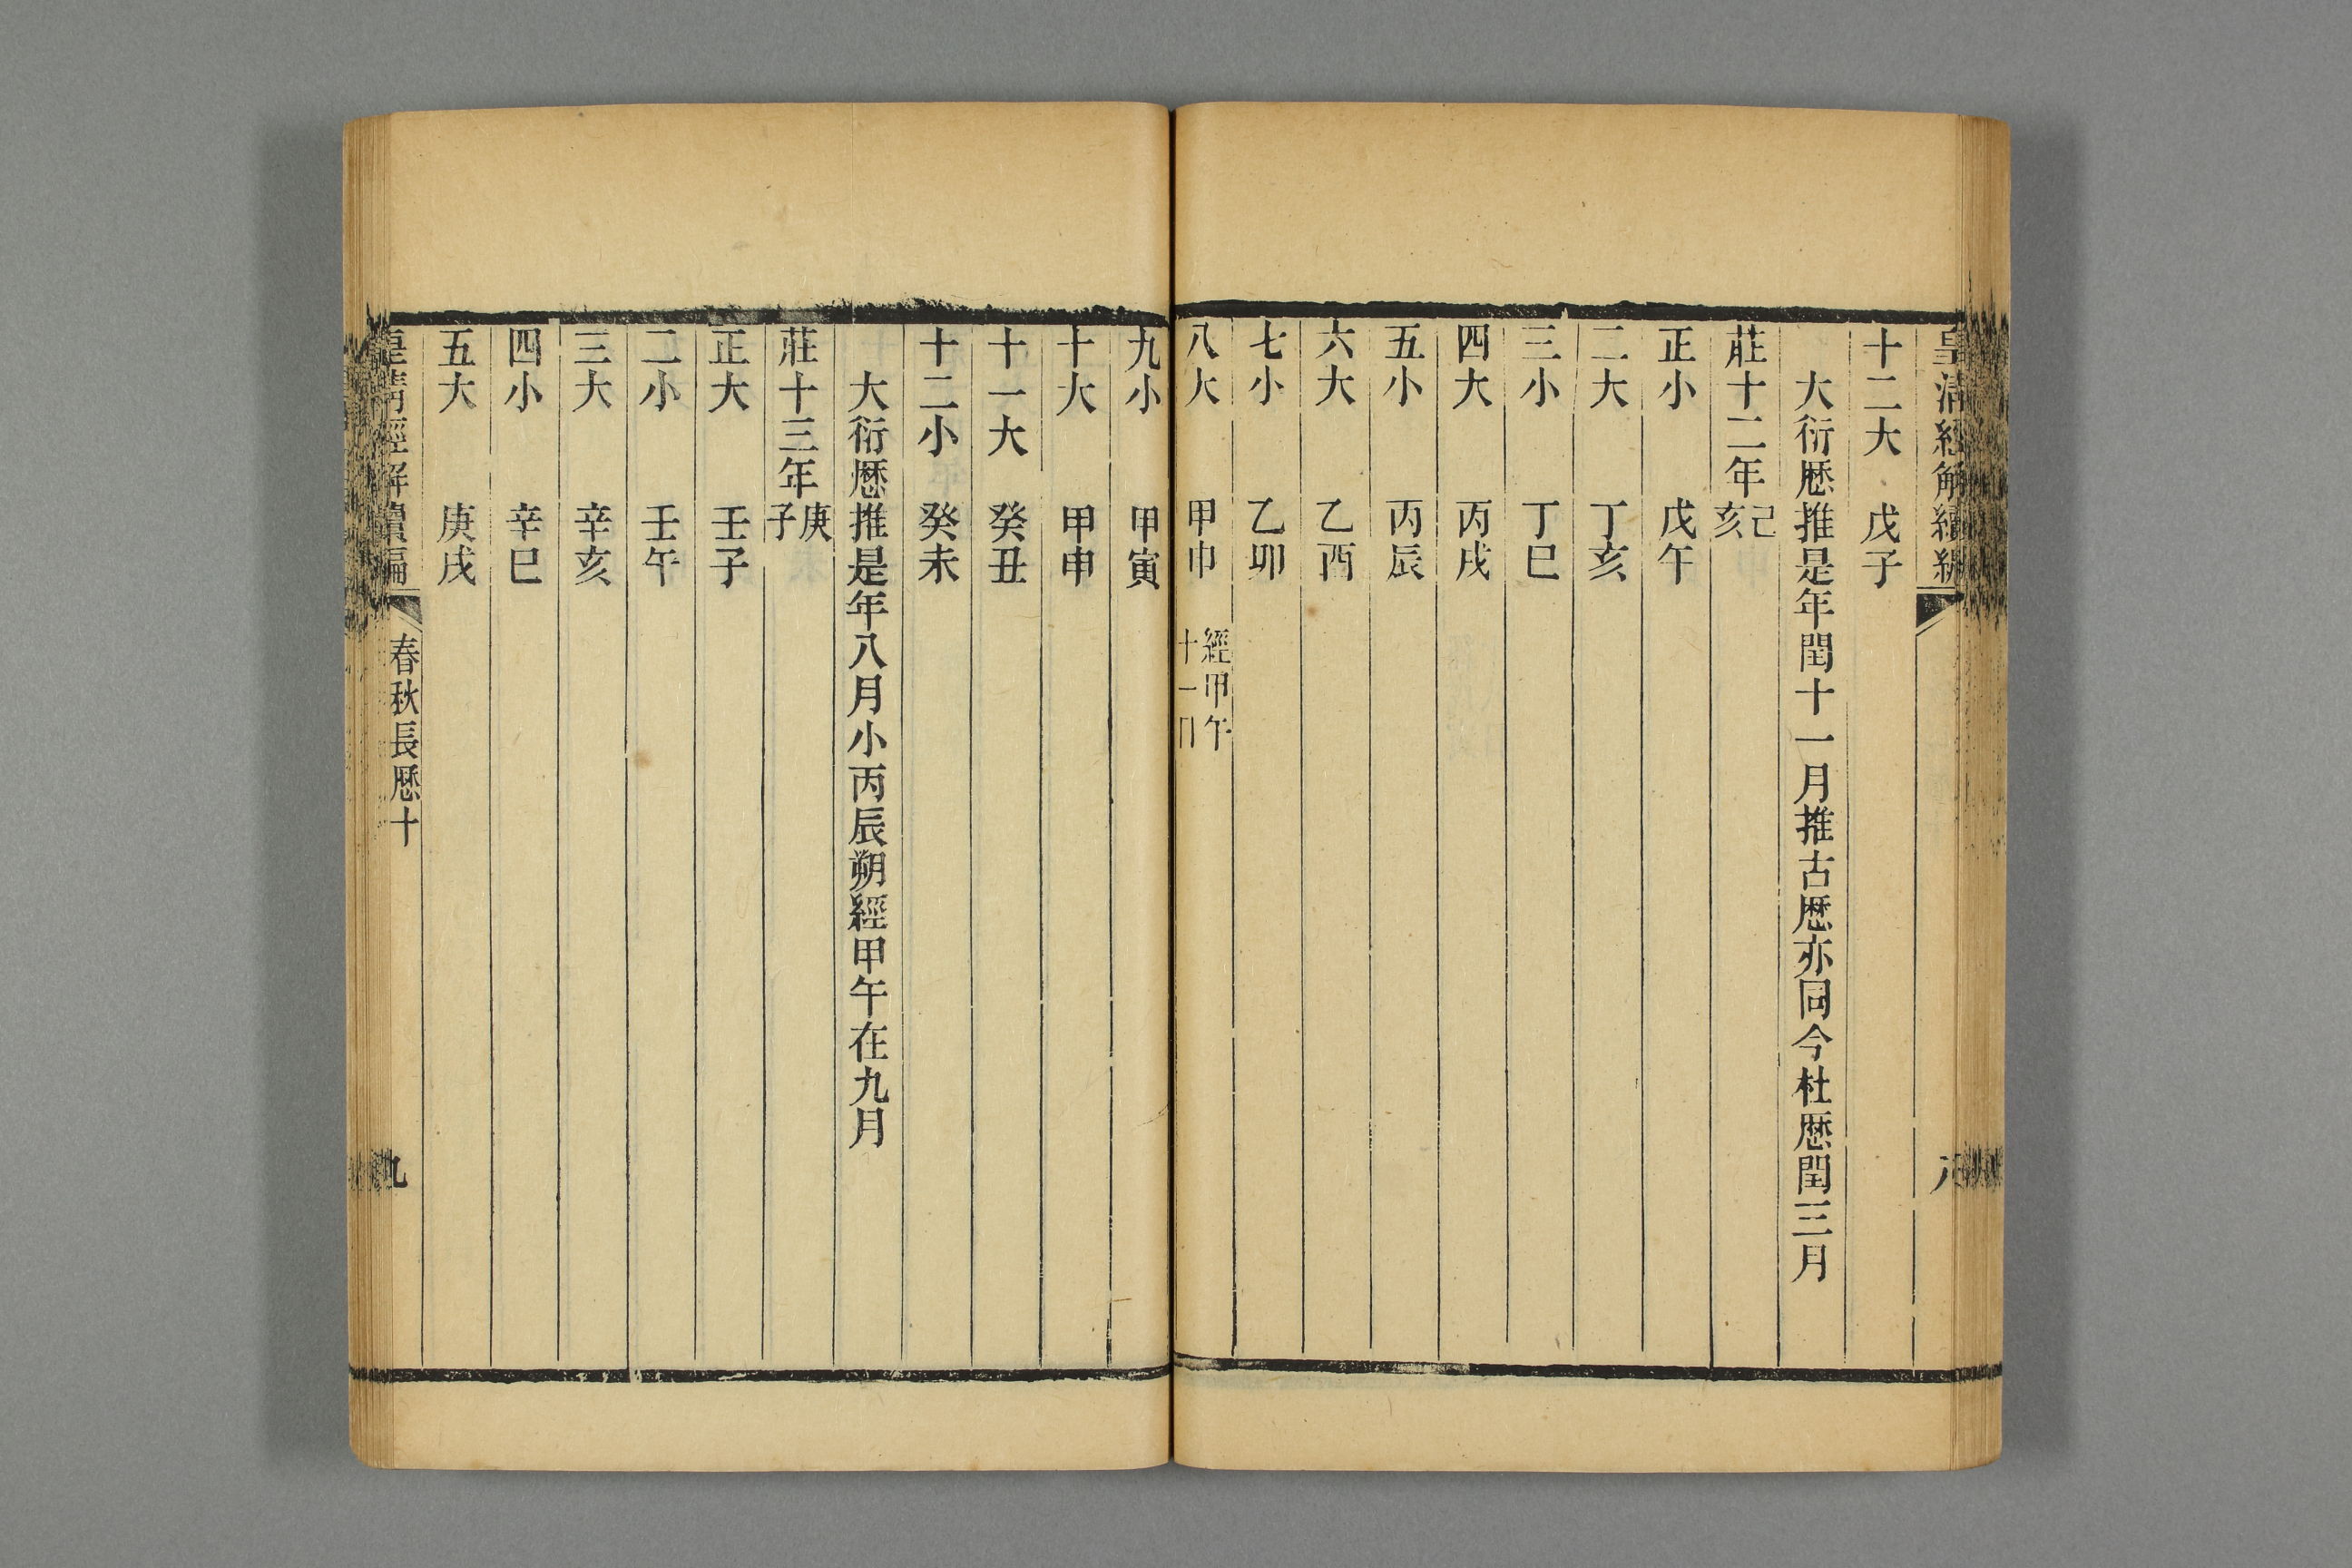 皇清經解續編
八
十二大 戊子
大衍厯推是年閏十一月推古厯亦同今杜厯閏三月
莊十二年己亥
正小 戊午
二大 丁亥
三小 丁巳
四大 丙戌
五小 丙辰
六大 乙酉
七小 乙卯
八大 甲申 經甲午十一日
九小 甲寅
十大 甲申
十一大 癸丑
十二小 癸未
大衍厯推是年八月小丙辰朔經甲午在九月
莊十三年庚子
正大 壬子
二小 壬午
三大 辛亥
四小 辛巳
五大 庚戌
皇清經解續編 春秋長厯十
九